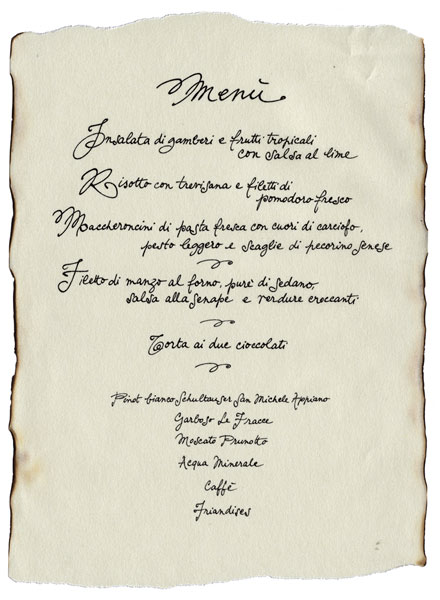 Menù
Insalata di gamberi e frutti tropicali
con salsa al lime
Risotto con trevisana e filetti di
pomodoro fresco
Maccheroncini di pasta fresca con cuori di carciofo,
pesto leggero e scaglie di pecorino senese
Filetto di manzo al forno, purè di sedano,
salsa alla senape e verdure croccanti
Torta ai due cioccolati
Pinot bianco Schultauser San Michele Appiano
Garboso Le Fracce
Moscato Prunotto
Acqua Minerale
Caffè
Friandises